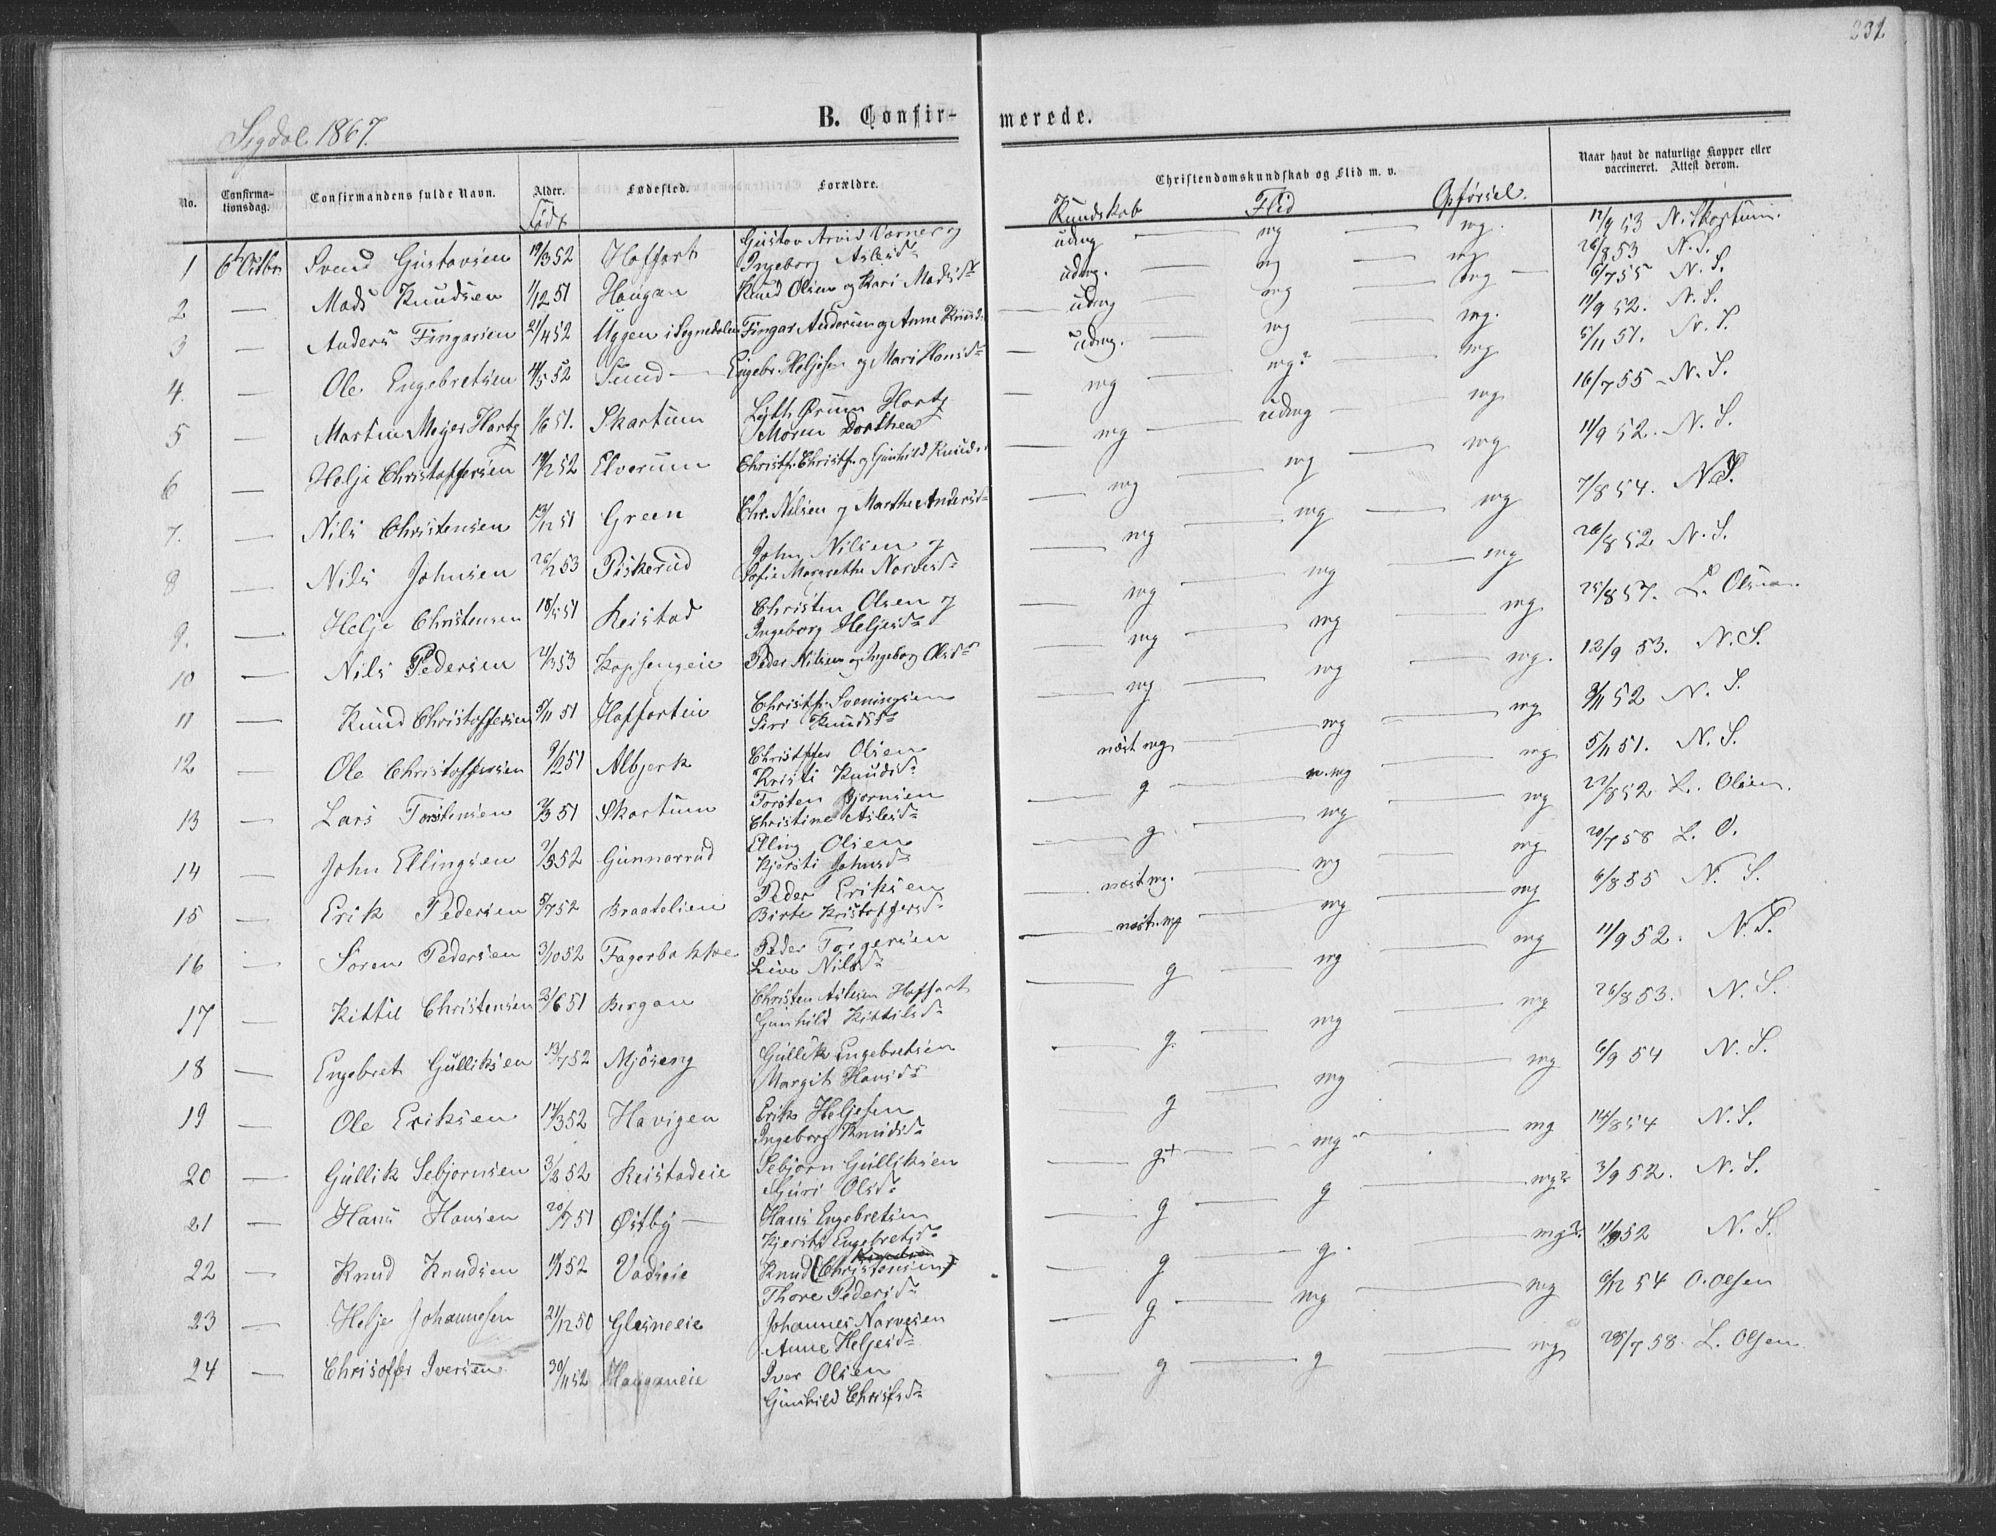 231
Sigdal 1867.
B. Confir-
merede.
No.
Confirma-
tionsdag.
Confirmandens fulde Navn.
Alder.
Född
Fødested.
Forældre.
Christendomskundskab og Flid m. v.
Kundskab Flid Opførsel.
Naar havt de naturlige Kopper eller
vaccineret. Attest derom.
1 6 Octbr Svend Gustavsen 19/3 52 Hoffart Gustav Arvid Varner og
Ingeborg Aslesd. udmg mg mg. 12/9 53 N. Skartum.
2 — Mads Knudsen 1/12 51 Haugan Knud Olsen og Kari Madsd. udmg. mg mg 26/8 53 N. S.
3 — Anders Fingarsen 21/4 52 Uggen i Sognedalen Fingar Andersen og Anne Knuds. udmg mg mg 6/7 55 N. S.
4. — Ole Engebretsen 4/5 52 Sund — Engebr. Heljesen og Mari Hansd. udmg. mg mg. 11/9 52. N. S.
5 — Martin Meyer Hartz 1/6 51. Skartum Lyth Ørum Hartz
Moren Dorthea mg mg? mg 5/11 51. N. S.
6 — Helje Christoffersen 19/2 52 Elverum Christf. Christf. og Gunhild Knuds. mg udmg mg 16/7 55 — N. S.
7. — Nils Christensen 13/12 51 Green Chr. Nilsen og Marthe Andersd. mg mg mg 11/9 52. N. S.
8 — Nils Johnsen 26/2 53 Piskerud John Nilsen og
Sofie Margrethe Narvesd. mg mg mg 7/8 54. N. S.
9. — Helje Christensen 18/5 51 Reistad Christen Olsen og
Ingeborg Heljesd. mg mg mg 26/8 52 N. S.
10 — Nils Pedersen 21/3 53 Kopsengeie Peder Nilsen og Ingeborg Olsd. mg mg mg 25/8 57. L. Olsen.
11 — Knud Christoffersen 5/11 51 Hoffarteie Christf. Sveningsen
Siri Knudsd. mg mg mg. 12/9 53. N. S.
12 — Ole Christoffersen 9/2 51 Albjerk Christoffer Olsen
Kristi Knudsd. næst mg mg mg 3/11 52 N. S.
13 — Lars Torstensen 3/3 51 Skartum Torsten Bjørnsen
Christine Aslesd. g n. mg mg 5/11 51. N. S.
14 — John Ellingsen 7/5 52 Gunnarrud Elling Olsen
Kjersti Johnsd. g. mg mg 27/8 52 L. Olsen.
15 — Erik Pedersen 5/7 52 Braatelien Peder Eriksen
Birte Kristoffersd. næst mg. mg mg 20/7 58 L. O.
16 — Søren Pedersen 3/10 52 Fagerbakke Peder Torgersen
Live Nilsd. næst. mg mg mg 6/8 55 N. S.
17 — Kittil Christensen 3/6 51 Bergan Christen Aslesen Hoffart
Gunhild Kittilsd. g mg mg 11/9 52. N. S.
18 — Engebret Gulliksen 13/7 52 Mjøseng Gullik Engebretsen
Margit Hansd. g. mg mg 26/8 53. N. S.
19 — Ole Eriksen 14/3 52 Havigen Erik Heljesen
Ingeborg Knudsd. g mg mg 6/9 54 N. S.
20 — Gullik Sebjørnsen 3/2 52 Reistadeie Sebjørn Gulliksen
Sjuri Olsd. g+ mg mg 14/8 54 N. S.
21 — Hans Hansen 20/7 51 Østby — Hans Engebretsen
Kjersti Engebretsd. g g mg? 3/9 52. N. S.
22 — Knud Knudsen 11/1 52 Vadseie Knud (Christensen)
Thore Pedersd. g g. mg? 11/9 52 N. S.
23 — Helje Johannesen 21/12 50 Glesneeie Johannes Narvesen
Anne Heljesd. g mg mg 6/12 54 O. Olsen
24 — Chrisoffer Iversen 30/11 52 Haugameie Iver Olsen
Gunhild Christfsd. g g mg 29/7 58. L. Olsen.